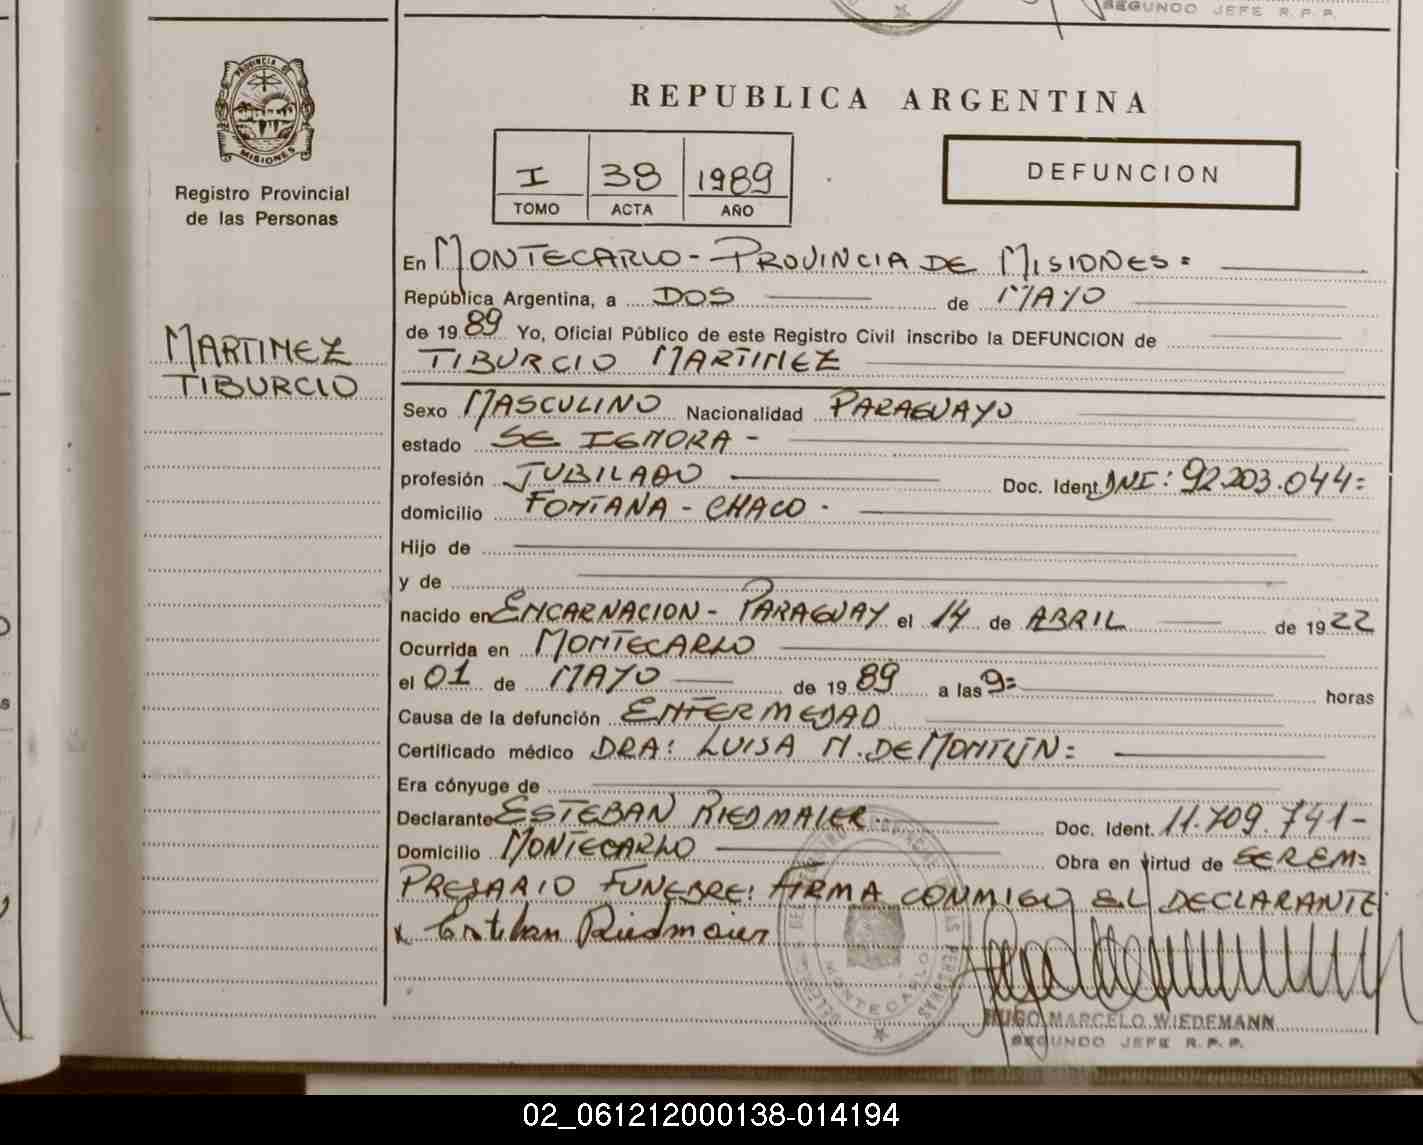 SEGUNDO JEFE R.P.P.
PROVINCIA DE
MISIONES
Registro Provincial
de las Personas
MARTINEZ
TIBURCIO
REPUBLICA ARGENTINA
I 38 1989
TOMO ACTA AÑO
DEFUNCION
En MONTECARLO - PROVINCIA DE MISIONES =
República Argentina, a DOS de MAYO
de 1989 Yo, Oficial Público de este Registro Civil inscribo la DEFUNCION de
TIBURCIO MARTINEZ
Sexo MASCULINO Nacionalidad PARAGUAYO
estado SE IGNORA -
profesión JUBILADO Doc. Ident. DNI: 92.203.044=
domicilio FONTANA - CHACO -
Hijo de
y de
nacido en ENCARNACION - PARAGUAY el 14 de ABRIL de 1922
Ocurrida en MONTECARLO
el 01 de MAYO de 1989 a las 9= horas
Causa de la defunción ENFERMEDAD
Certificado médico DRA: LUISA M. DE
Era cónyuge de
Declarante ESTEBAN RIEDMAIER - Doc. Ident. 11.709.741-
Domicilio MONTECARLO Obra en virtud de SER EM=
PRESARIO FUNEBRE: FIRMA CONMIGO EL DECLARANTE
x Esteban Riedmaier
MONTECARLO
HUGO MARCELO WIEDEMANN
SEGUNDO JEFE R.P.P.
02_061212000138-014194